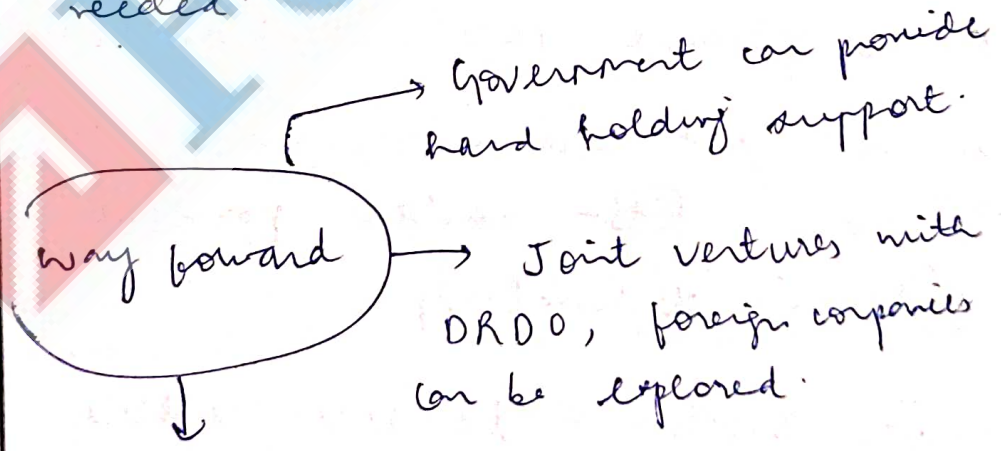 needed
Government can provide
hand holding support.
way forward
Joint ventures with
DRDO, foreign companies
can be explored.